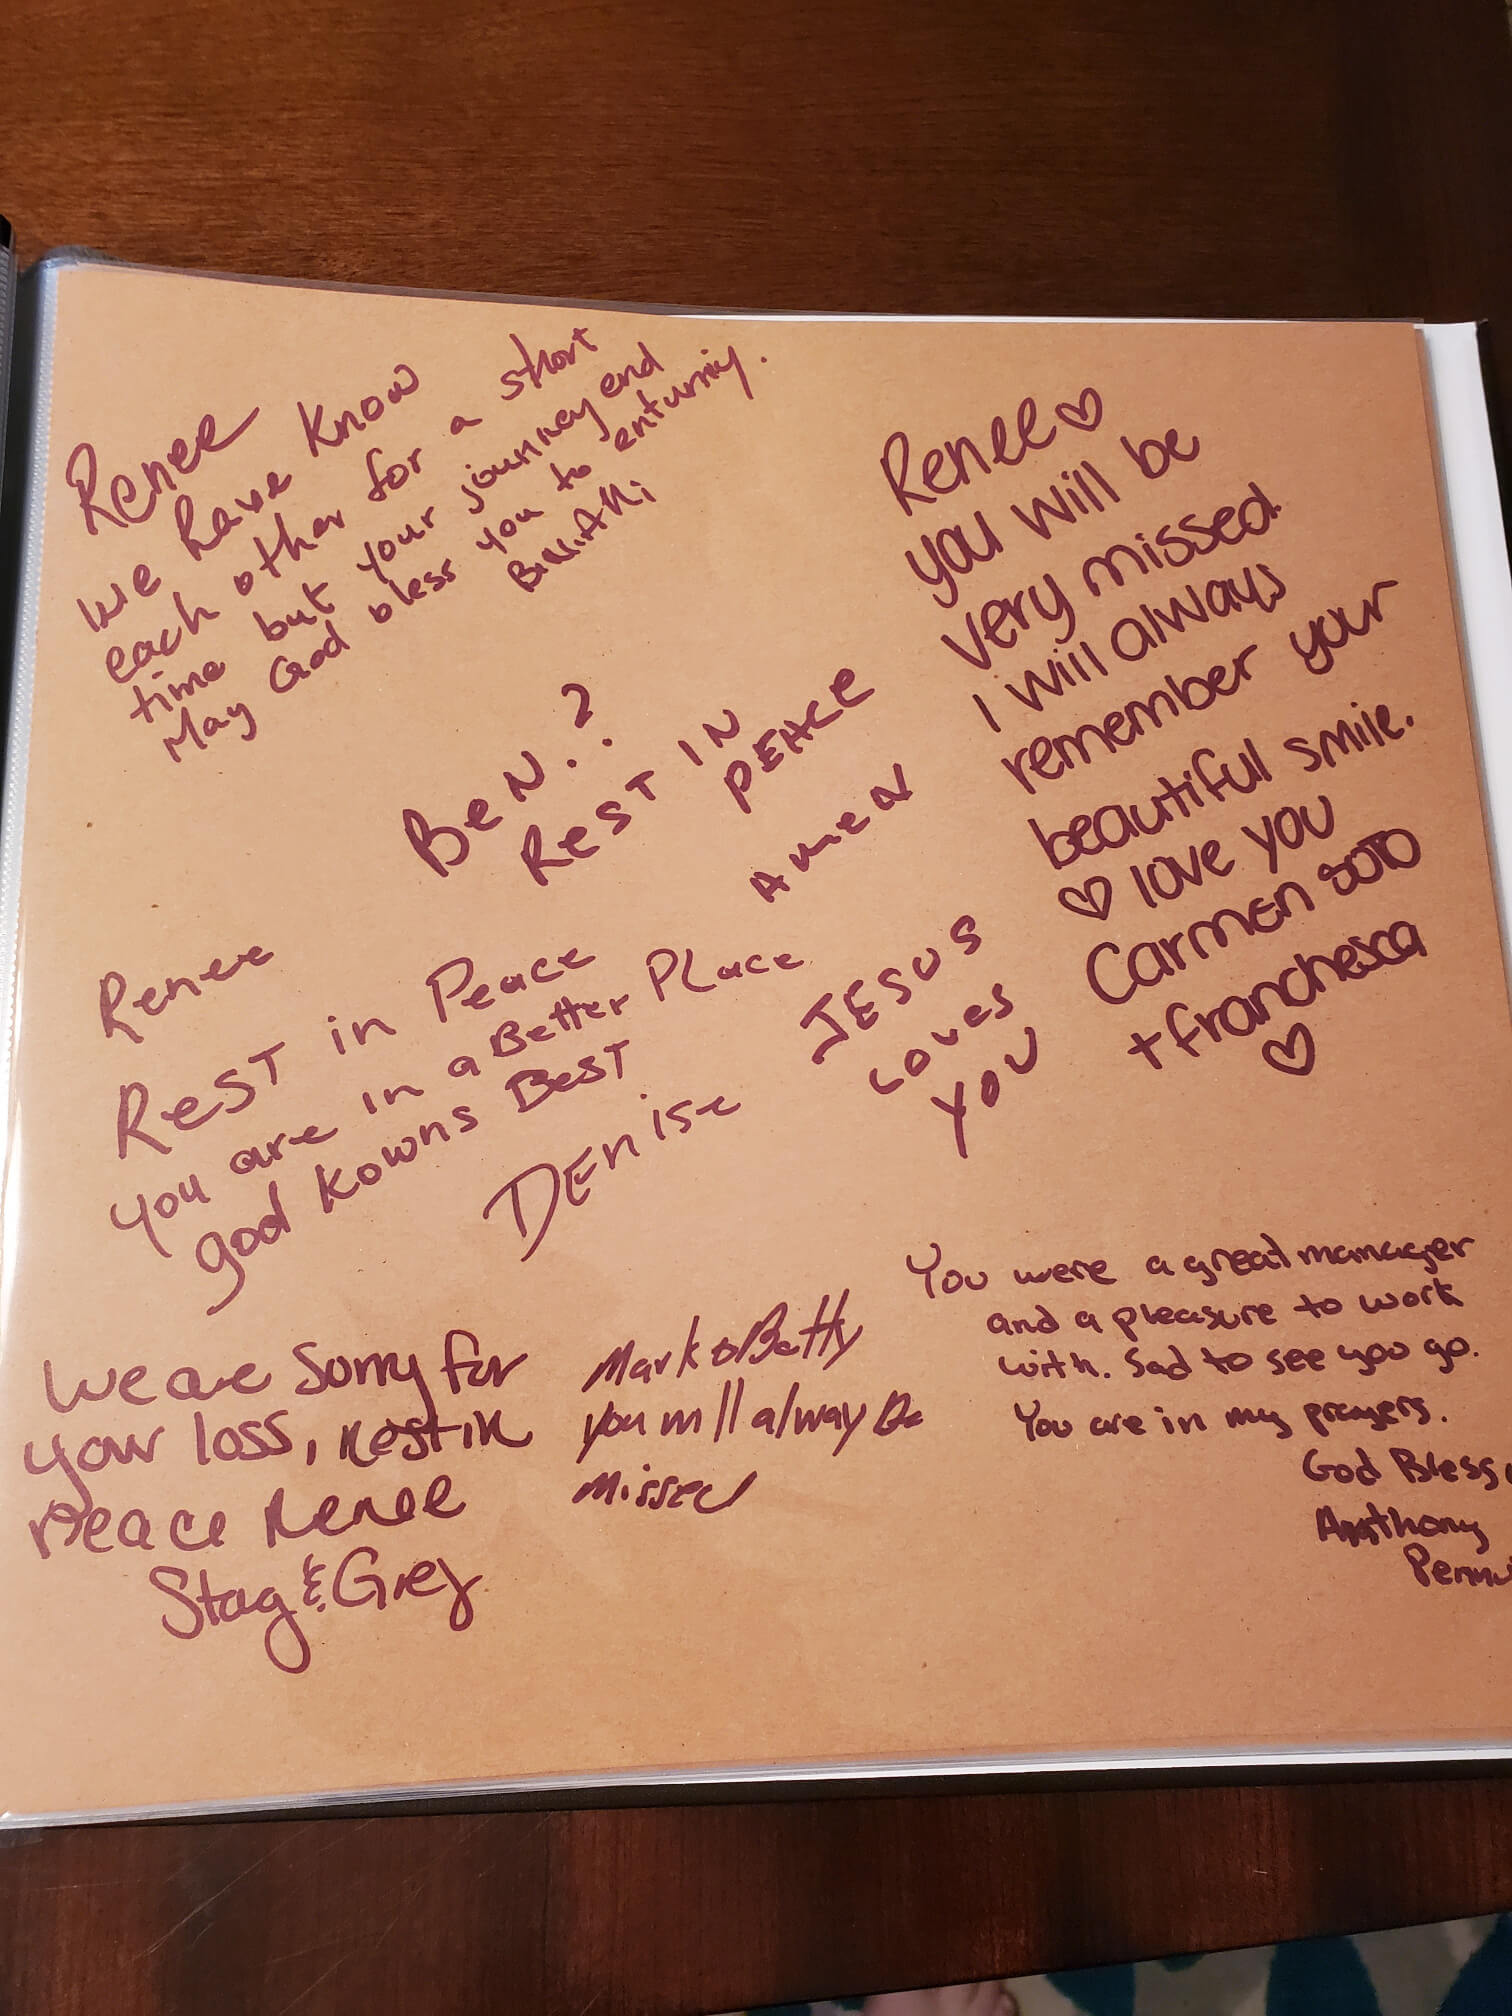 Renee
We have know
each other for a short
time but your journey end
May God bless you to enturniy.
Renee ♡
you will be
very missed.
I will always
remember your
beautiful smile.
♡ love you
Carmen SOTO
+ franchesca
♡
BeN.?
ReST IN
PEACE
AmeN
Renee
ReST in Peace
you are in a Better PLace
god kowns BeST
DENise
JESUS
Loves
YOU
We are Sorry for
your loss, Rest in
Peace Renee
& Greg
Mark & Betty
you will alway Be
missed
You were a great manager
and a pleasure to work
with. Sad to see you go.
You are in my prayers.
God Bless,
Anthony